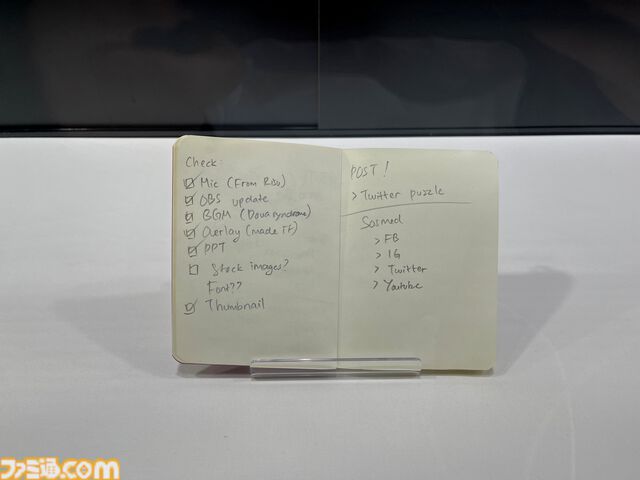 Check:
☑ Mic (From Riso)
☑ OBS update
☑ BGM (Dova syndrome)
☑ Overlay (made Tt)
☑ PPT
☐ Stock images?
Font??
☑ Thumbnail
POST!
> Twitter puzzle
Sosmed
> FB
> IG
> Twitter
> Youtube
ファミ通.com